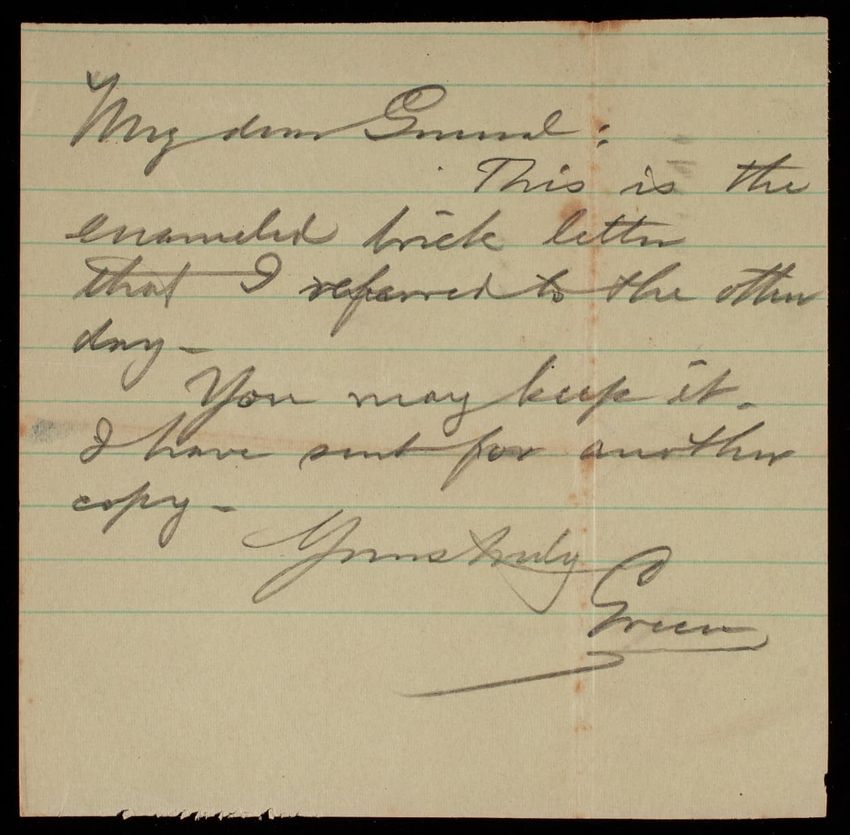 My dear General:
This is the
enameled brick letter
that I referred to the other
day-
You may keep it.
I have sent for another
copy-
Yours truly
Green